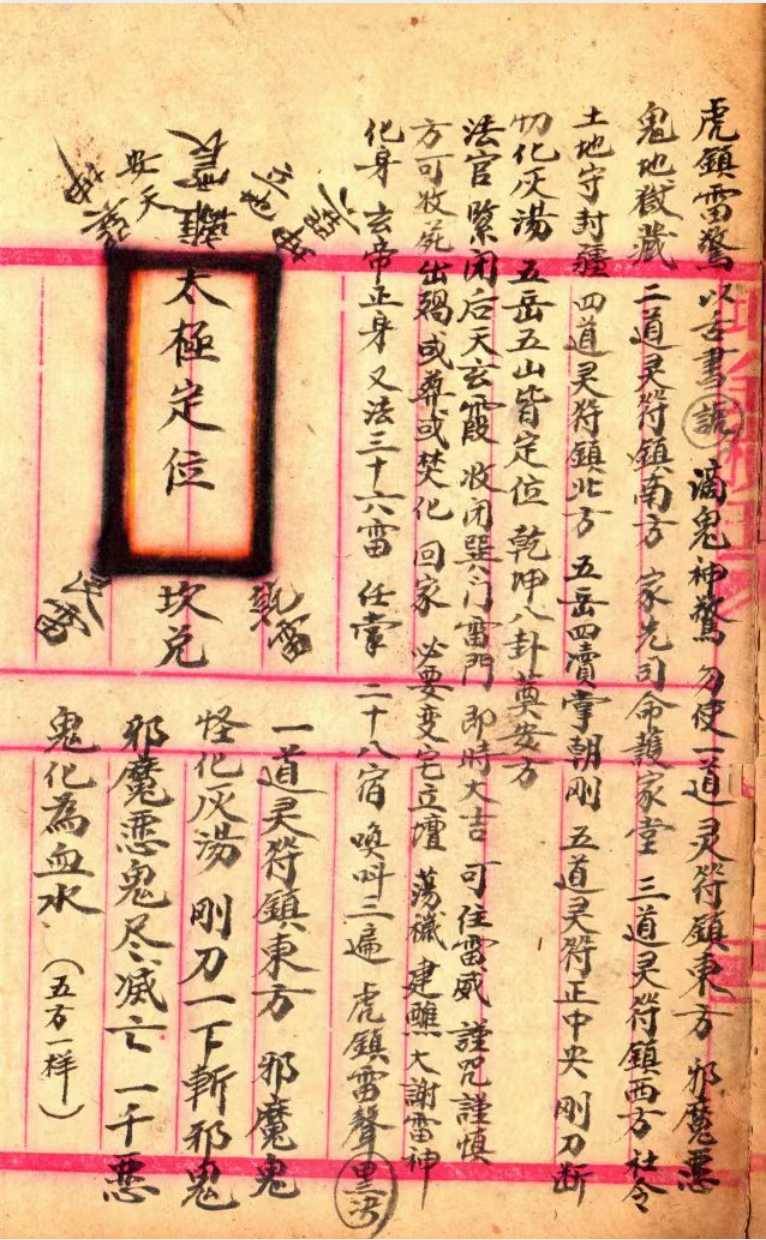 虎鎮雷驚 以舌書 滴鬼神驚 勿使一道灵符鎮東方 邪魔恶
鬼地獄藏 二道灵符鎮南方 家先司命護家堂 三道灵符鎮西方 社令
土地守封疆 四道灵符鎮北方 五岳四瀆掌朝刚 五道灵符正中央 刚刀断
切化灰湯 五岳五山皆定位 乾坤八卦奠安方
法官緊闭后天玄霞 收闭巽门雷門 即時大吉 可住雷威 謹咒謹慎
方可收 出 或葬或焚化 回家 必要变宅立壇 蕩穢建醮大謝雷神
化身 玄帝正身 又法三十六雷 任掌 二十八宿 唤叫三遍 虎鎮雷聲
太極定位
坎兑
乾雷
安天
離震
一道灵符鎮東方 邪魔鬼
怪化灰湯 刚刀一下斬邪鬼
邪魔恶鬼尽滅亡 一千恶
鬼化為血水 （五方一样）